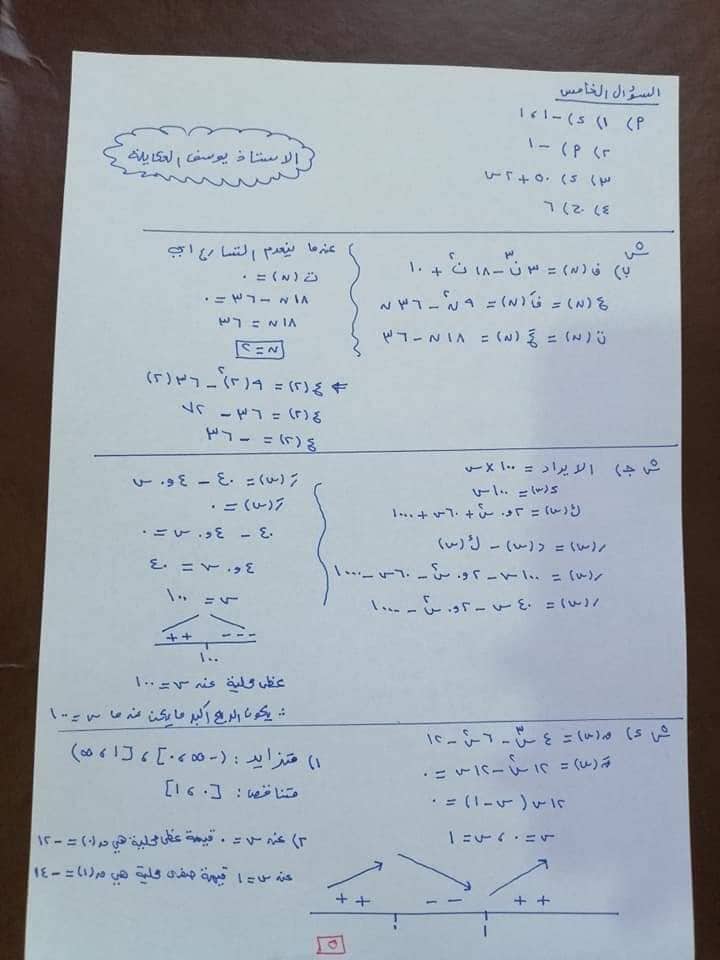 السؤال الخامس
الاستاذ يوسف العكايلة
م) ١) د) -١ ، ١
٢) م) -١
٣) د) ٥٠ + ٢س
٤) ج) ٦
ش
ب) ف(ن) = ٣ن٣ - ١٨ن٢ + ١٠
ع(ن) = فَ(ن) = ٩ن٢ - ٣٦ن
ت(ن) = عَ(ن) = ١٨ن - ٣٦
عندما ينعدم التسارع اي
ت(ن) = ٠
١٨ن - ٣٦ = ٠
١٨ن = ٣٦
ن = ٢
ع(٢) = ٩(٢)٢ - ٣٦(٢)
ع(٢) = ٣٦ - ٧٢
ع(٢) = -٣٦
ش ج) الايراد = ١٠٠ × س
د(س) = ١٠٠س
ك(س) = ٢و٠ س٢ + ٦٠س + ١٠٠٠
ر(س) = د(س) - ك(س)
ر(س) = ١٠٠س - ٢و٠ س٢ - ٦٠س - ١٠٠٠
ر(س) = ٤٠س - ٢و٠ س٢ - ١٠٠٠
رَ(س) = ٤٠ - ٤و٠ س
رَ(س) = ٠
٤٠ - ٤و٠ س = ٠
٤و٠ س = ٤٠
س = ١٠٠
++ ---
١٠٠
عظمى محلية عند س = ١٠٠
∴ يكون الربح أكبر ما يمكن عند ما س = ١٠٠
ش د) ق(س) = ٤س٣ - ٦س٢ - ١٢
قَ(س) = ١٢س٢ - ١٢س = ٠
١٢س (س - ١) = ٠
س = ٠ ، س = ١
++ -- ++
٠ ١
١) متزايد : (-∞ ، ٠] ، [١ ، ∞)
متناقص : [٠ ، ١]
٢) عند س = ٠ قيمة عظمى محلية هي ق(٠) = -١٢
عند س = ١ قيمة صغرى محلية هي ق(١) = -١٤
٥